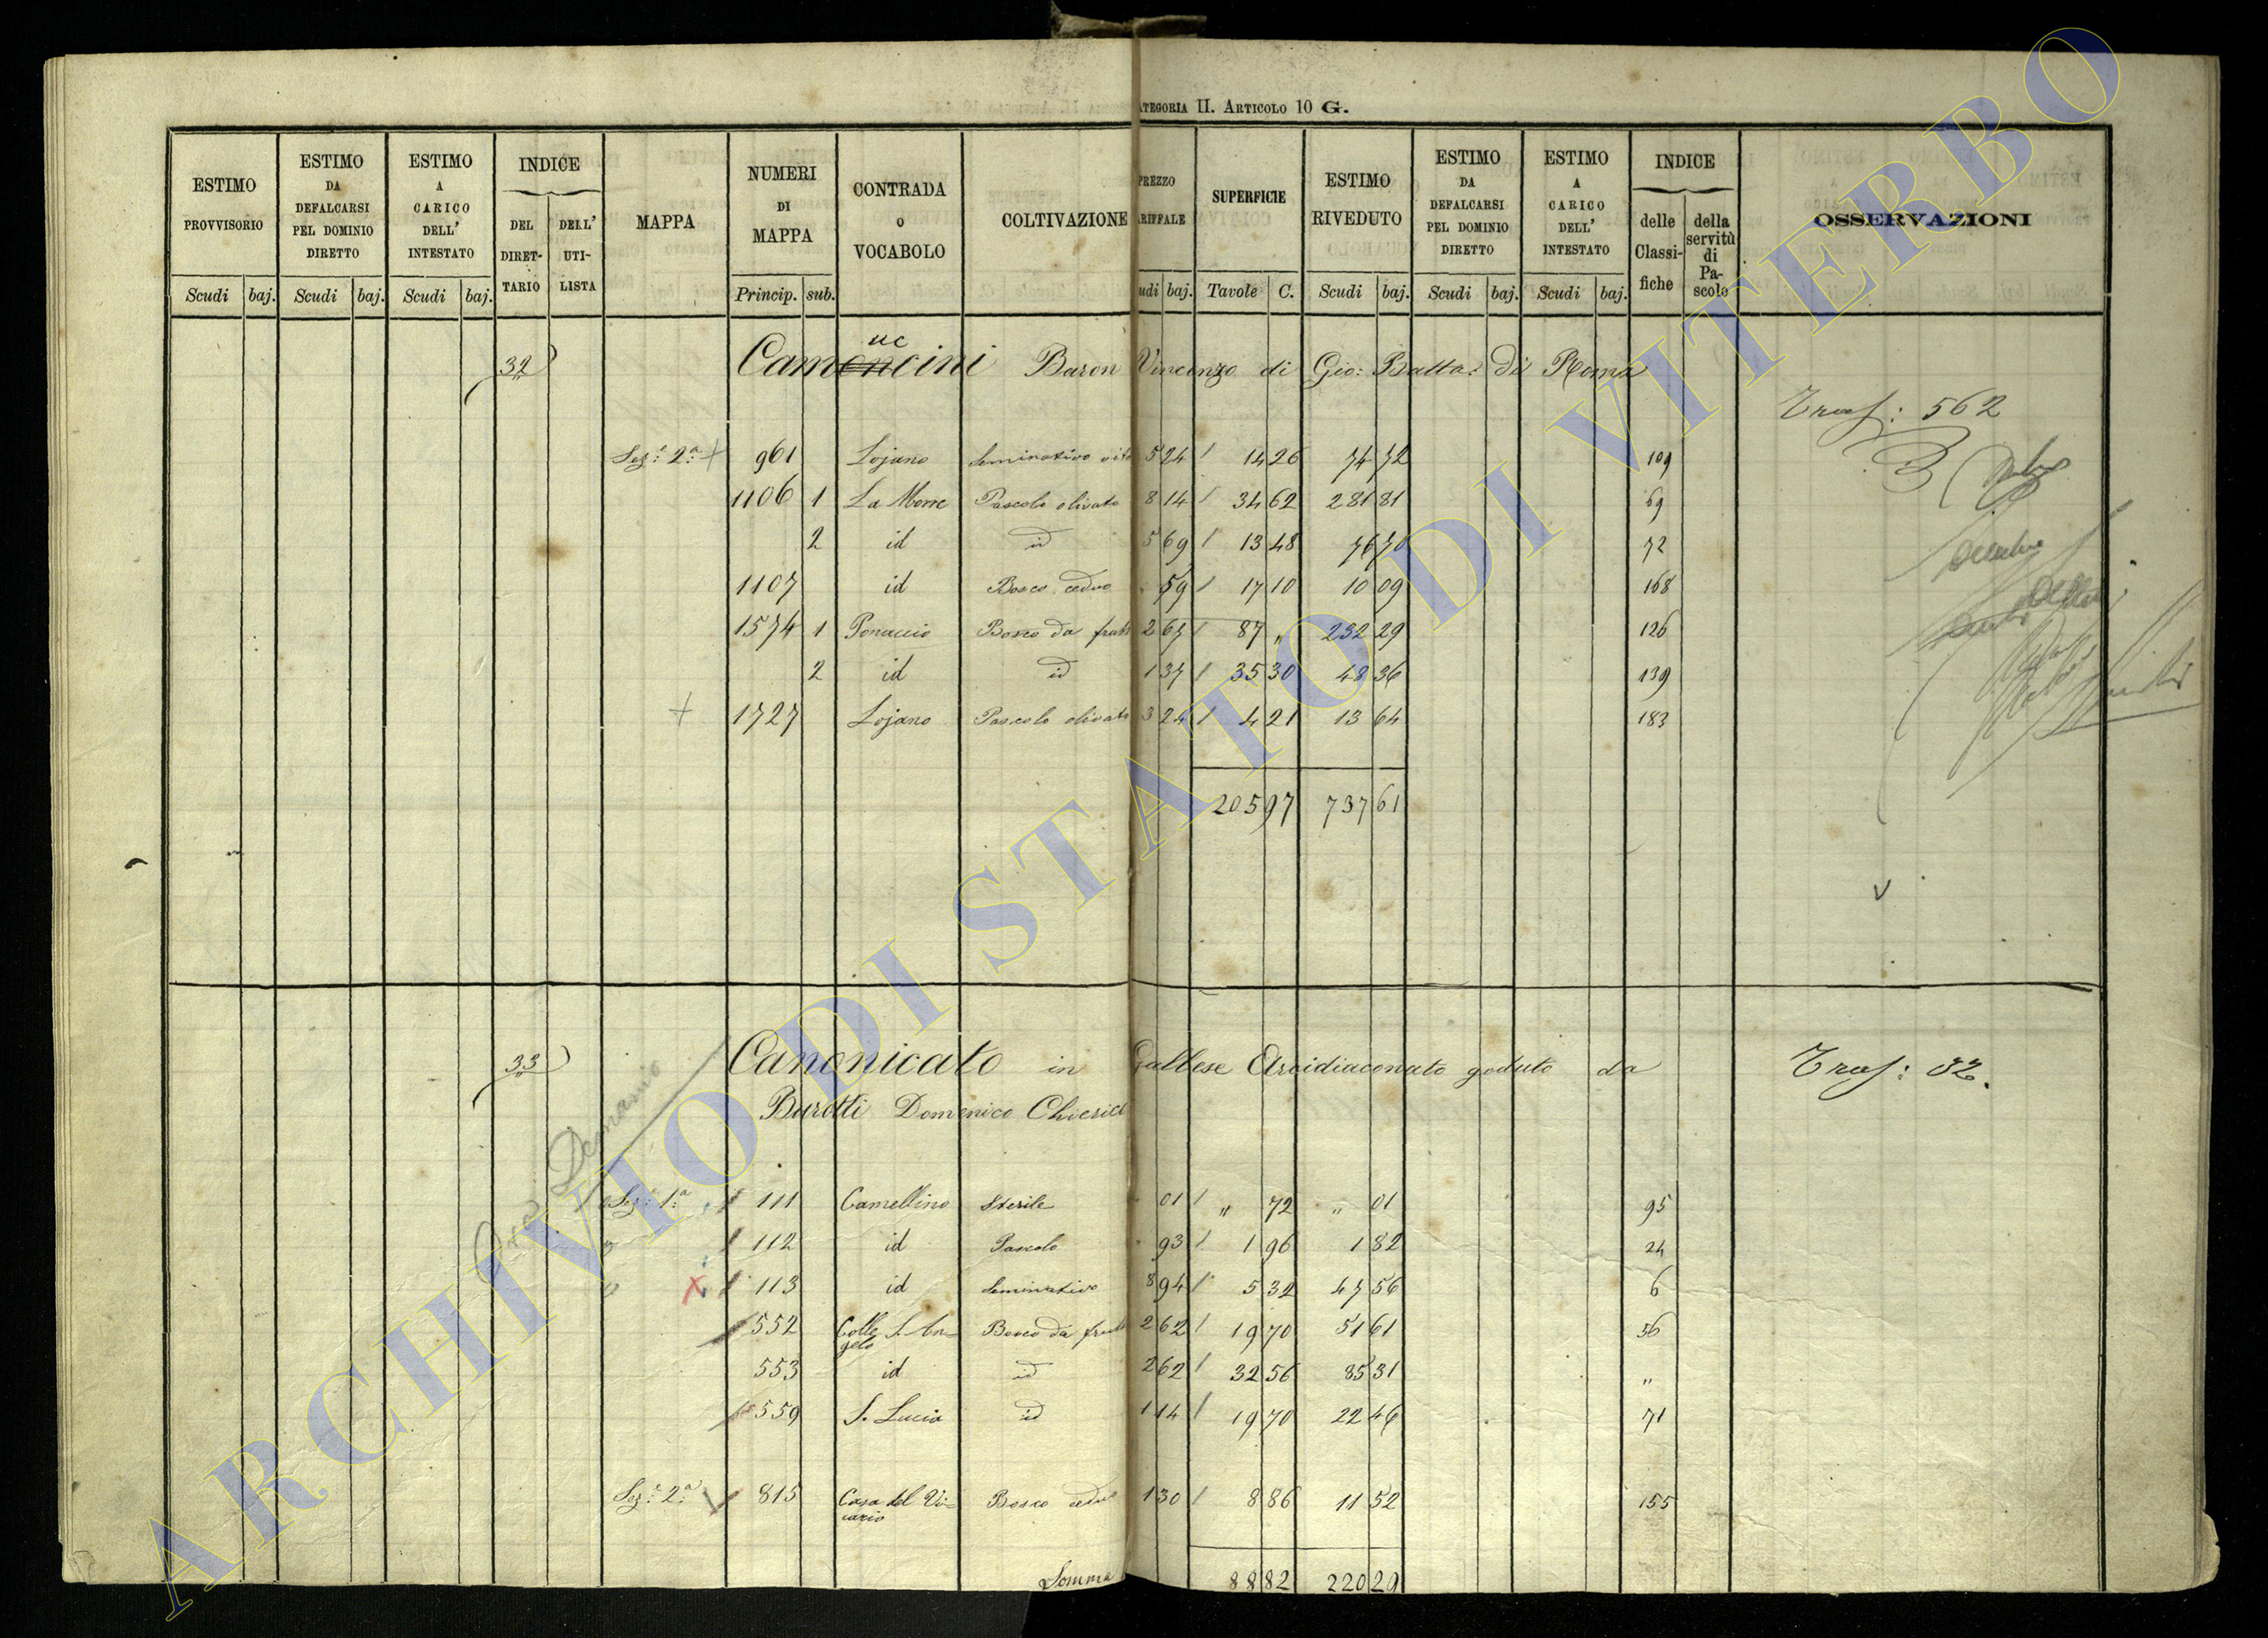 CATEGORIA II. ARTICOLO 10 G.
ESTIMO PROVVISORIO Scudi baj.
ESTIMO DA DEFALCARSI PEL DOMINIO DIRETTO Scudi baj.
ESTIMO A CARICO DELL' INTESTATO Scudi baj.
INDICE DEL DIRET-TARIO DELL' UTI-LISTA
MAPPA
NUMERI DI MAPPA Princip. sub.
CONTRADA o VOCABOLO
COLTIVAZIONE
PREZZO TARIFFALE Scudi baj.
SUPERFICIE Tavole C.
ESTIMO RIVEDUTO Scudi baj.
ESTIMO DA DEFALCARSI PEL DOMINIO DIRETTO Scudi baj.
ESTIMO A CARICO DELL' INTESTATO Scudi baj.
INDICE delle Classi-fiche della servitù di Pa-scolo
OSSERVAZIONI
32 Camencini uc Baron Vincenzo di Gio: Batta: di Roma
Tras: 562
Sez:e 2a: + 961 Lojano Seminativo vit 5 24 14 26 74 72 109
1106 1 La Morre Pascolo olivato 8 14 34 62 281 81 69
2 id id 5 69 13 48 76 70 72
1107 id Bosco ceduo 59 17 10 10 09 168
1574 1 Ponaccio Bosco da frutt 2 67 87 „ 232 29 126
2 id id 1 37 35 30 48 36 139
+ 1727 Lojano Pascolo olivato 3 24 4 21 13 64 183
205 97 737 61
33 Canonicato in Gallese Arcidiaconato goduto da Tras: 82.
Burotti Domenico Chierico
Demanio
Sez:e 1a 111 Camellino Sterile 01 „ 72 „ 01 95
112 id Pascolo 93 1 96 1 82 24
X 113 id Seminativo 8 94 5 32 47 56 6
552 Colle S. An-gelo Bosco da frutt 2 62 19 70 51 61 56
553 id id 2 62 32 56 85 31 „
559 S. Lucia id 1 14 19 70 22 46 71
Sez:e 2a: 815 Casa del Vi-cario Bosco ceduo 1 30 8 86 11 52 155
Somma 88 82 220 29
ARCHIVIO DI STATO DI VITERBO